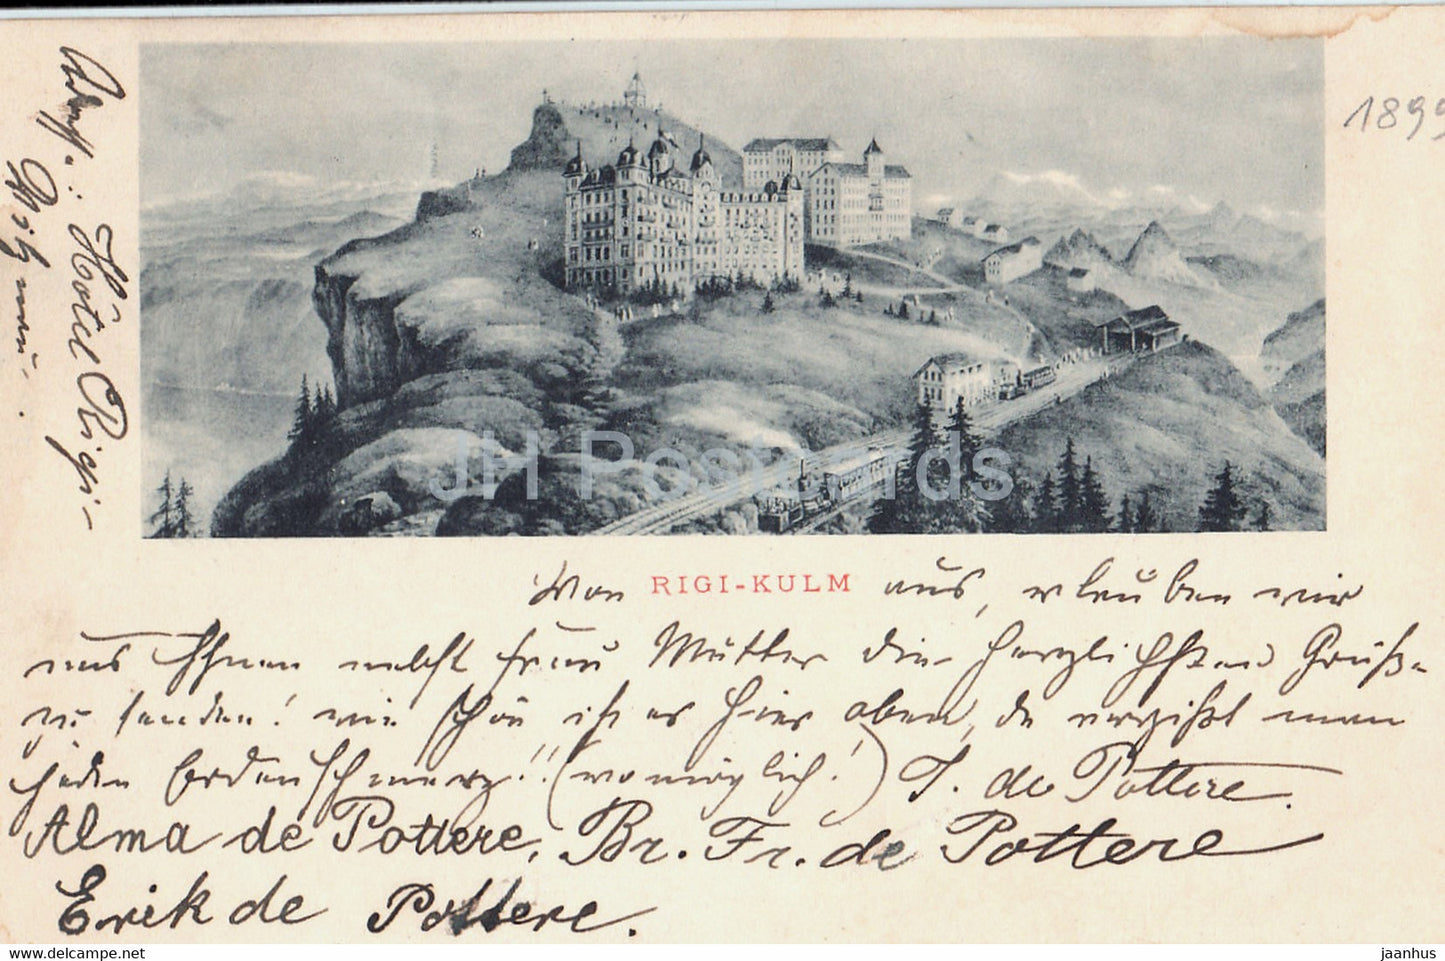 1899
Adresse: Hôtel Rigi-
Von RIGI-KULM aus, erlauben wir
uns Ihnen nebst Frau Mutter die herzlichsten Grüße
zu senden! wie schön ist es hier oben, da vergißt man
jeden Erdenschmerz!! (womöglich!) J. de Pottere.
Alma de Pottere, Br. Fr. de Pottere
Erik de Pottere.
JH Postcards
hippostcard.com
jaanhus